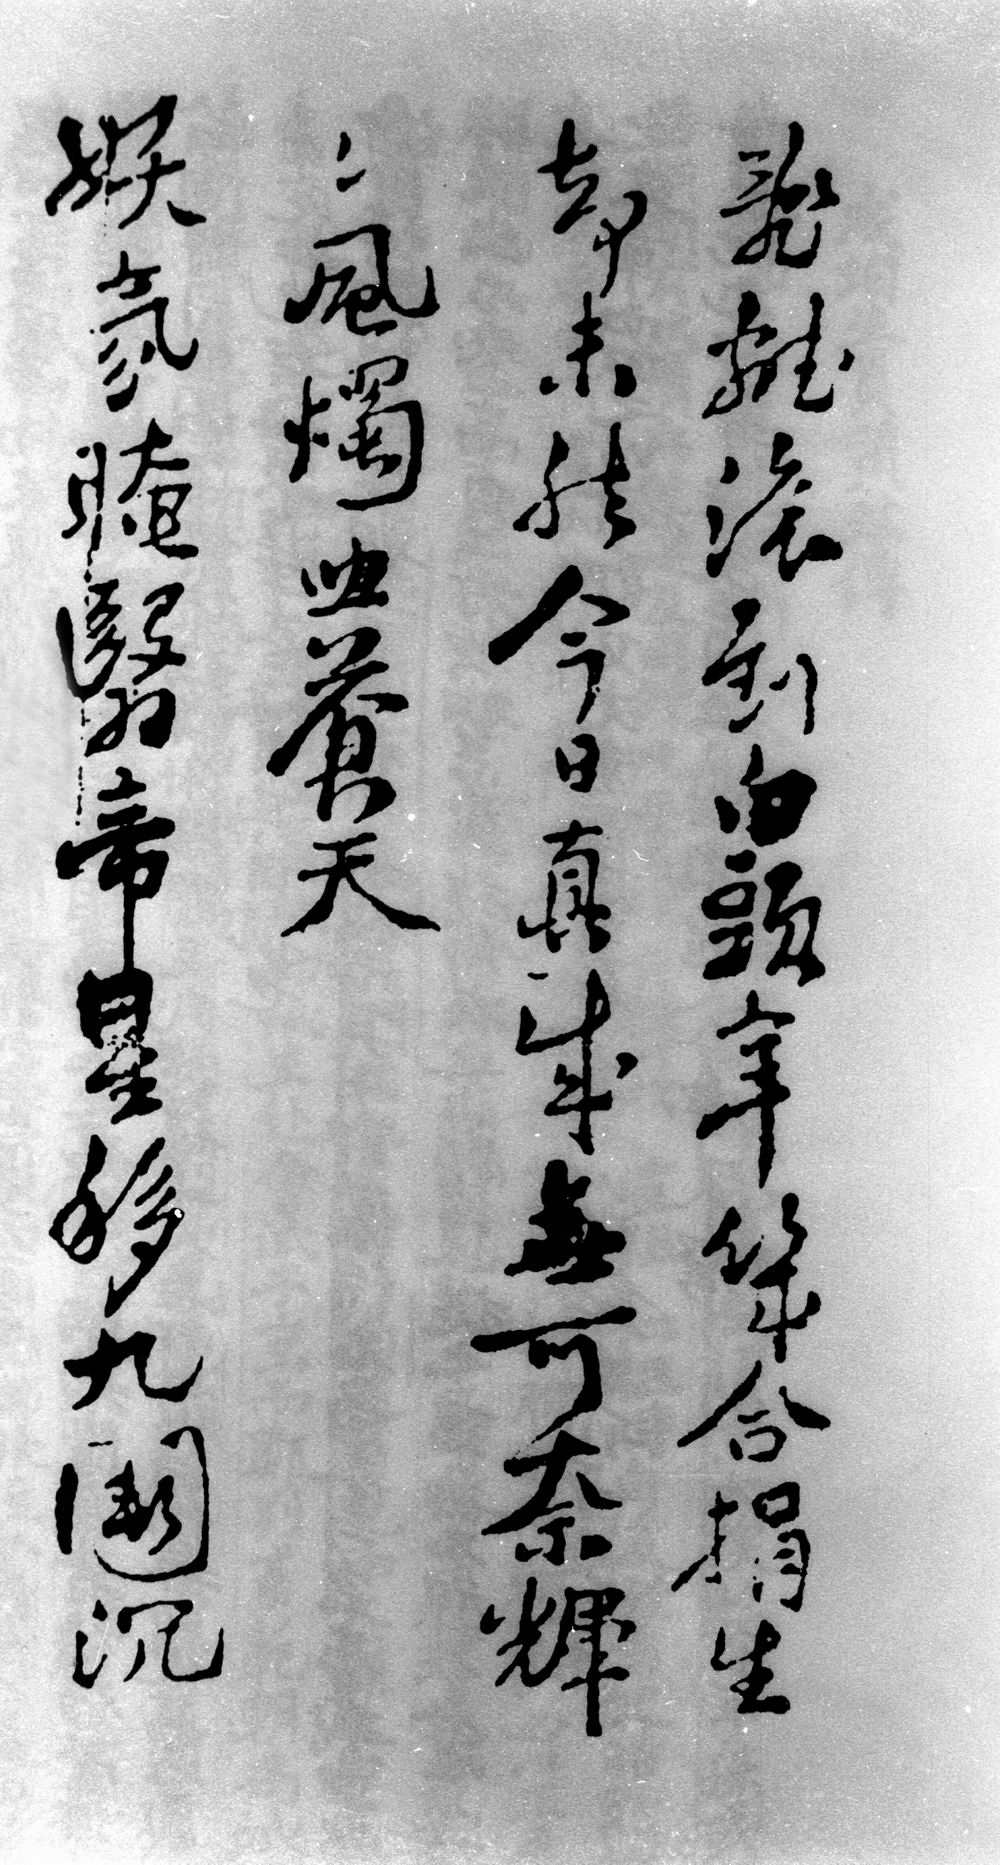 亂離滾到白頭年幾合捐生
却未然今日真成無可奈輝
〻風燭照蒼天
妖氛晻翳帝星移九闕沉